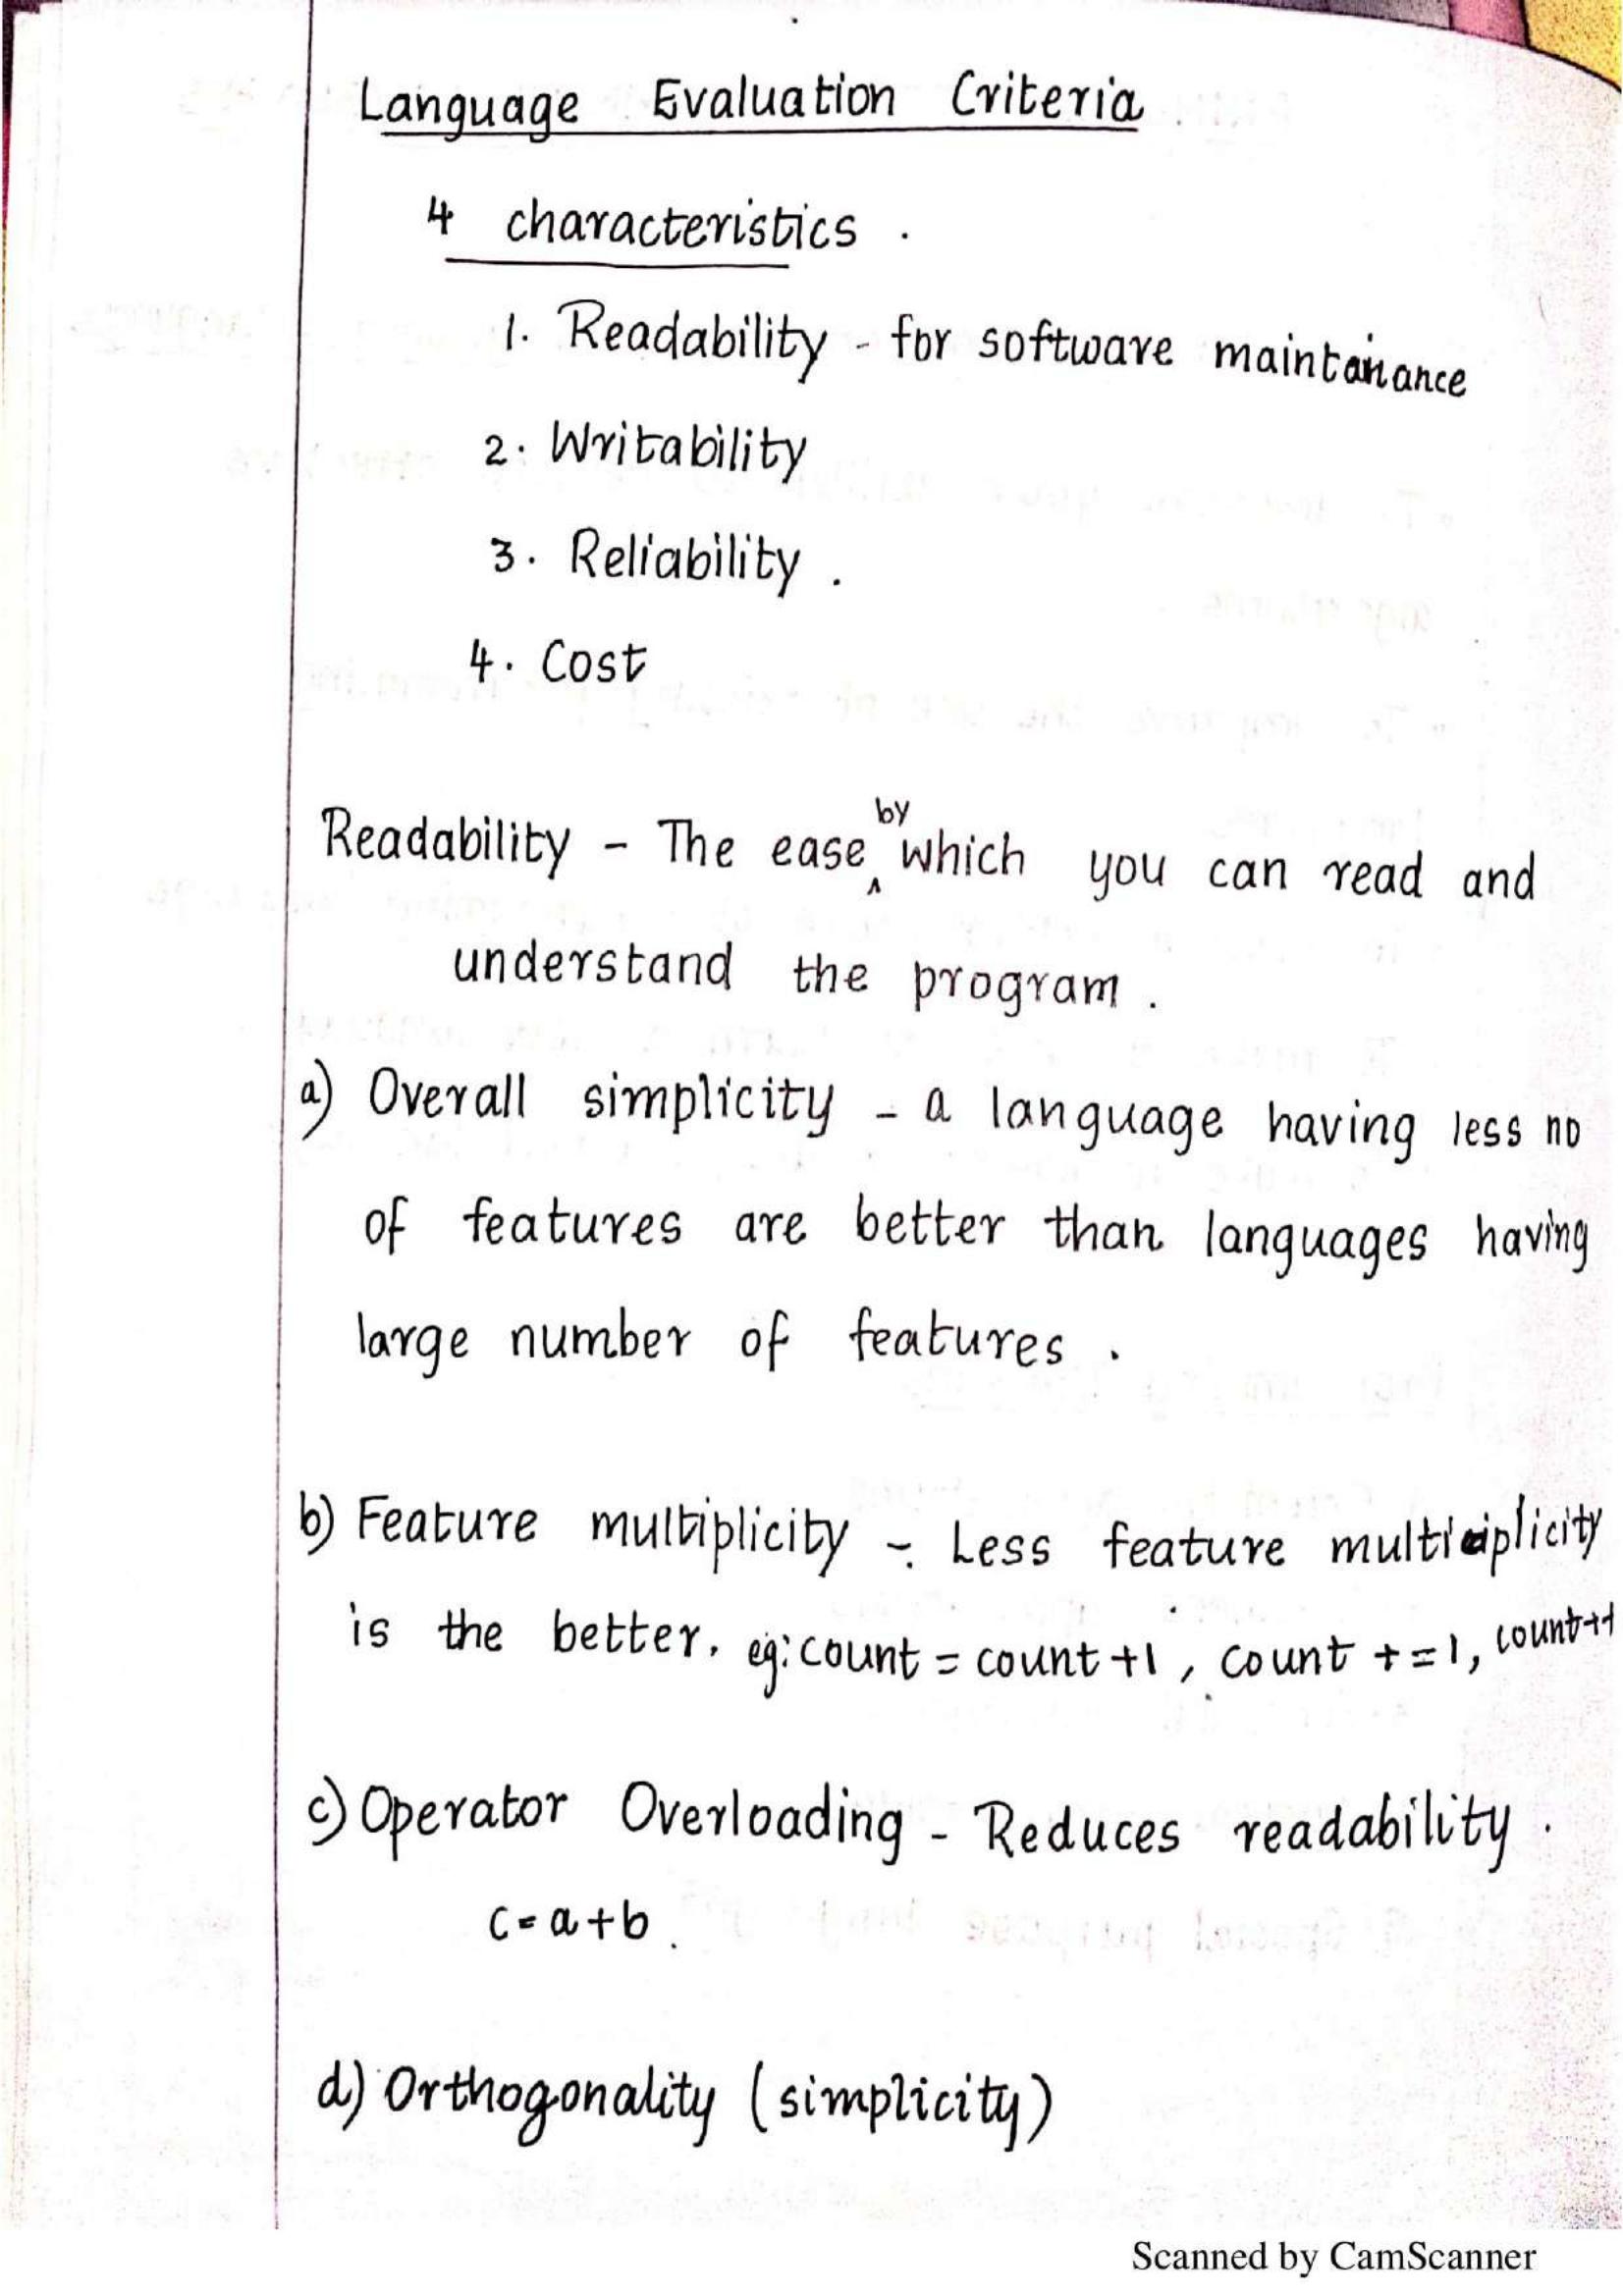 Language Evaluation Criteria
4 characteristics .
1. Readability - for software maintanance
2. Writability
3. Reliability .
4. Cost
Readability - The ease by which you can read and
understand the program .
a) Overall simplicity - a language having less no
of features are better than languages having
large number of features .
b) Feature multiplicity - Less feature multiplicity
is the better. eg: count = count +1 , count +=1, count++
c) Operator Overloading - Reduces readability .
c = a+b .
d) Orthogonality (simplicity)
Scanned by CamScanner